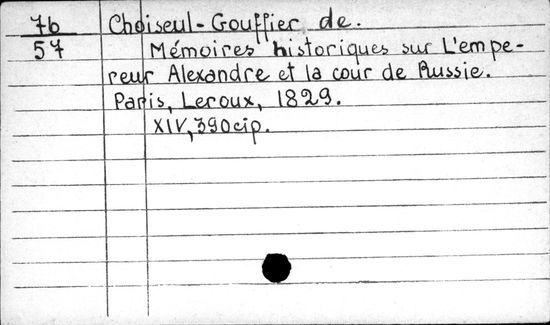 76 Choiseul-Gouffier de.
57 Mémoires historiques sur L'empe-
reur Alexandre et la cour de Russie.
Paris, Leroux, 1829.
XIV, 390 cip.